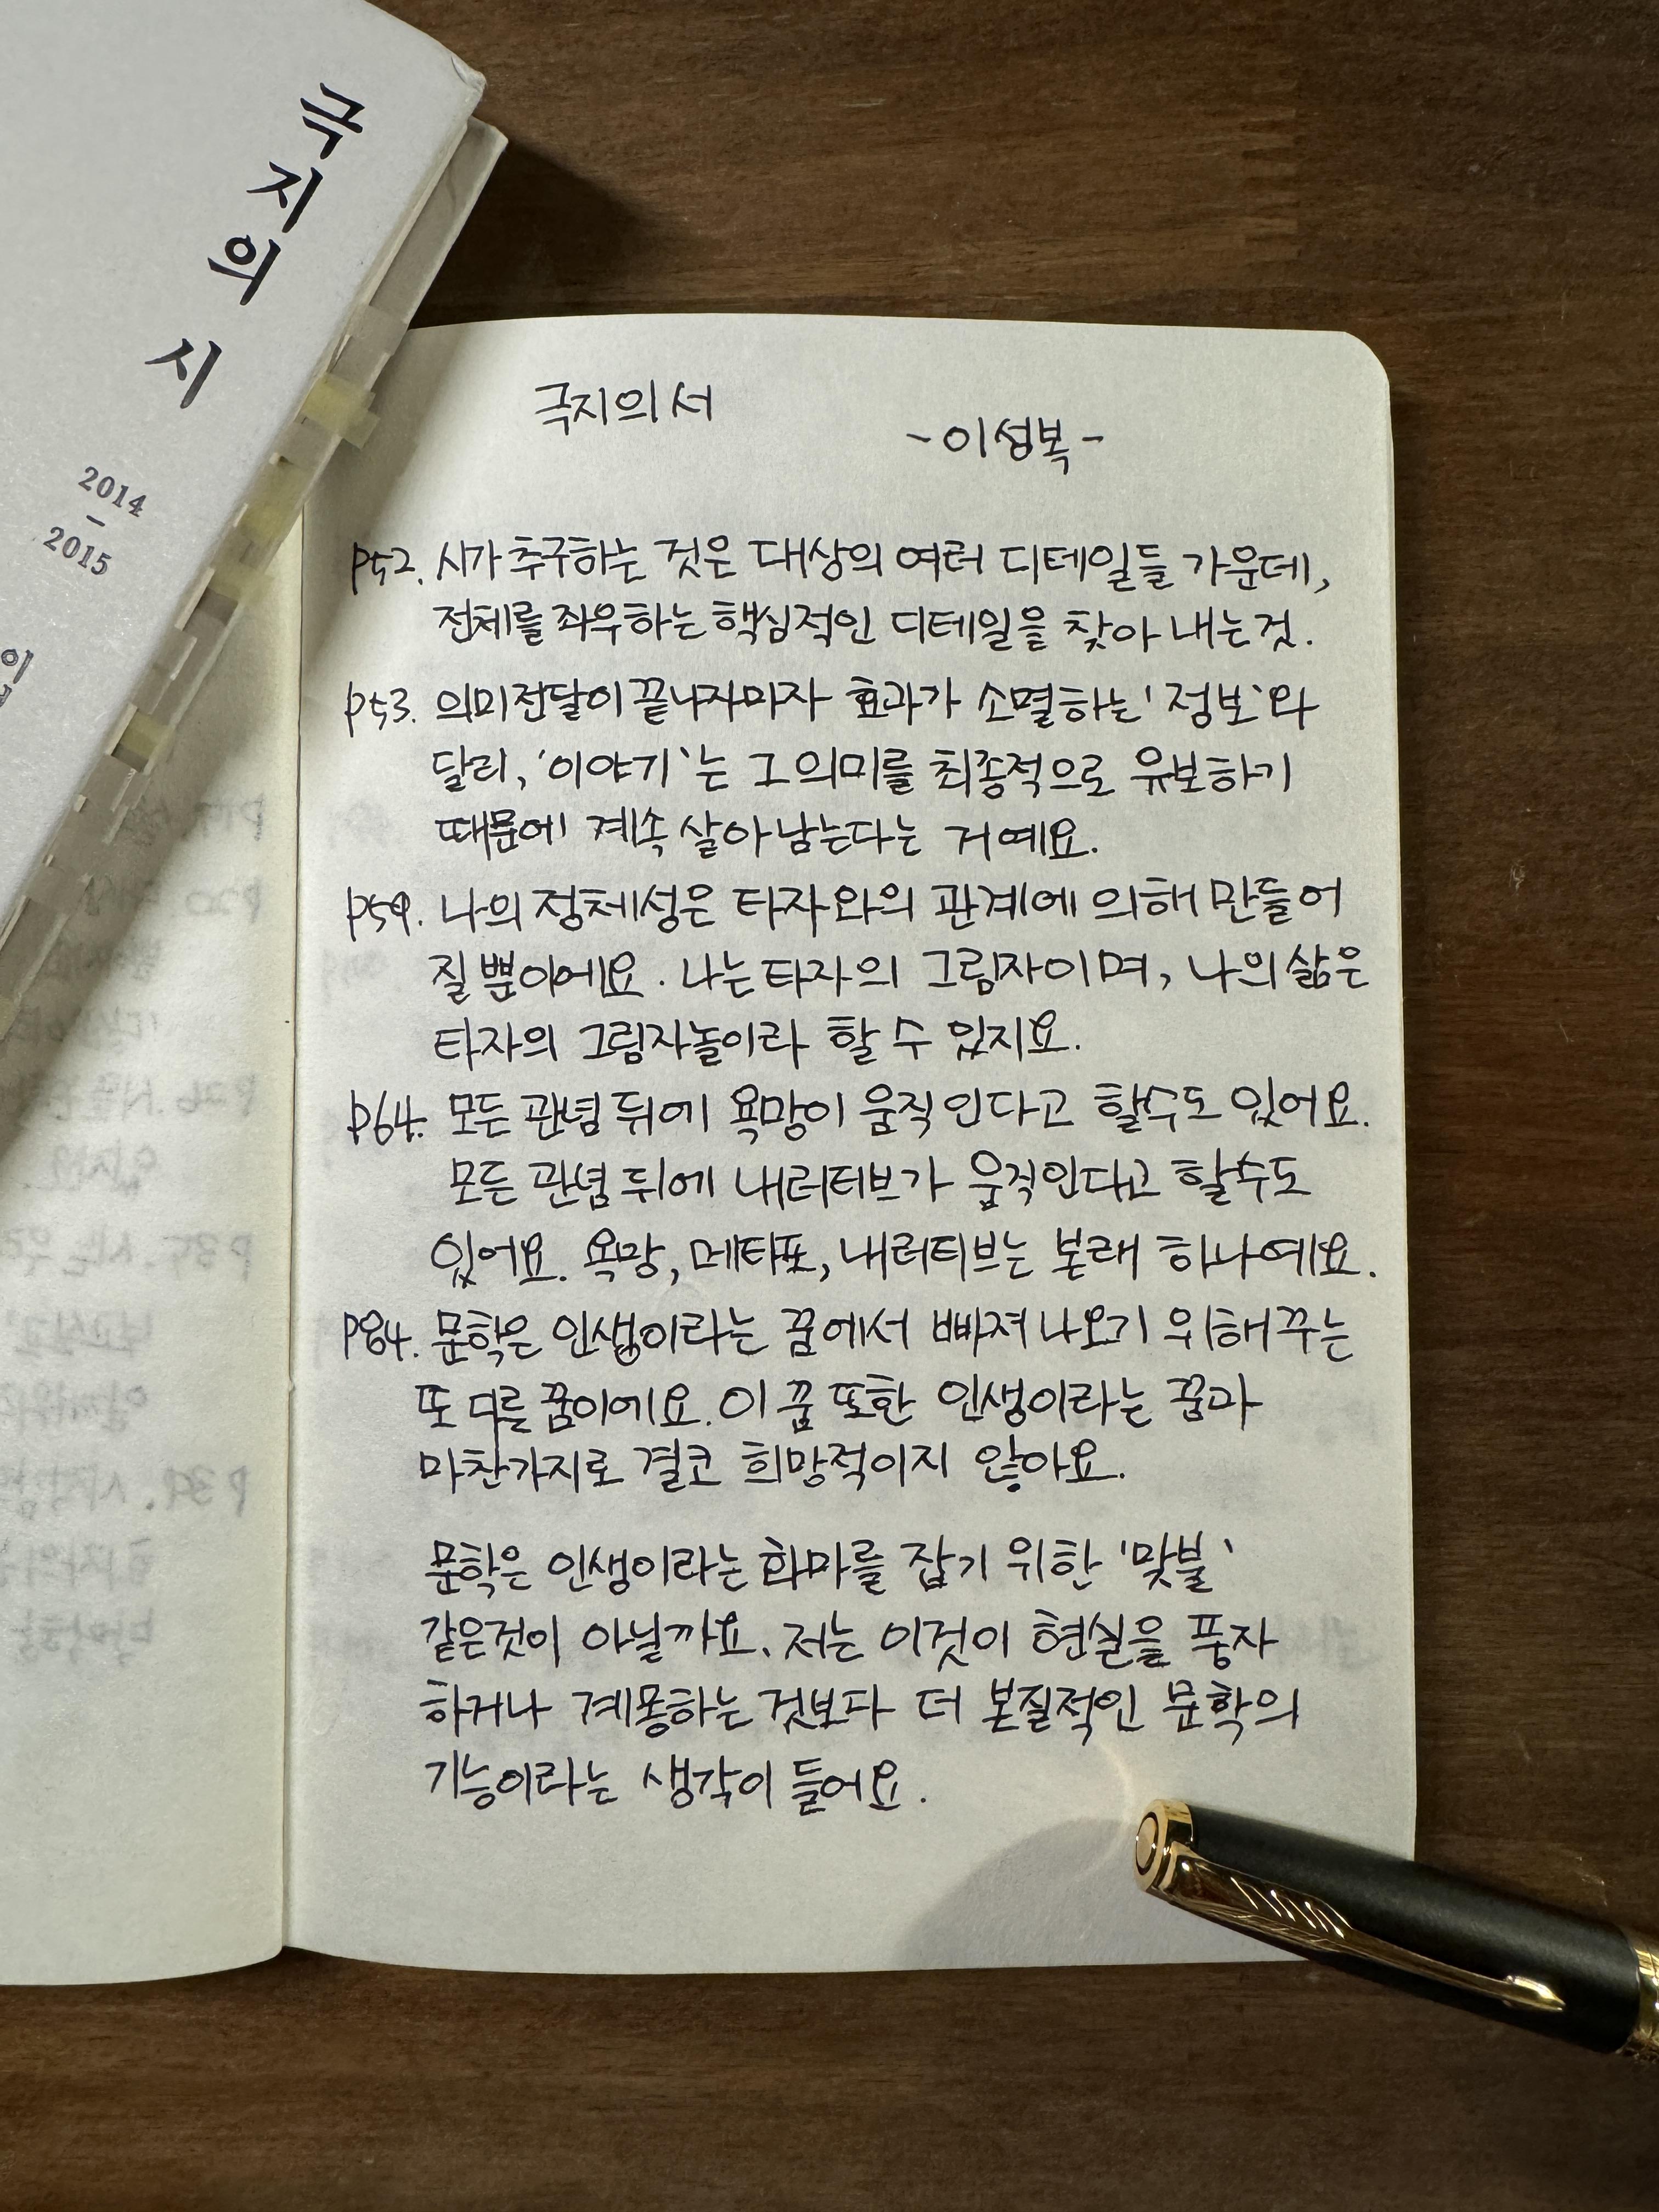 극지의 시
2014
-
2015
이
극지의 서
-이성복-
P52. 시가 추구하는 것은 대상의 여러 디테일들 가운데,
전체를 좌우하는 핵심적인 디테일을 찾아 내는것.
P53. 의미전달이 끝나자마자 효과가 소멸하는 '정보'와
달리, '이야기'는 그 의미를 최종적으로 유보하기
때문에 계속 살아남는다는 거예요.
P59. 나의 정체성은 타자와의 관계에 의해 만들어
질 뿐이에요. 나는 타자의 그림자이며, 나의 삶은
타자의 그림자놀이라 할 수 있지요.
P64. 모든 관념 뒤에 욕망이 움직인다고 할수도 있어요.
모든 관념 뒤에 내러티브가 움직인다고 할수도
있어요. 욕망, 메타포, 내러티브는 본래 하나예요.
P84. 문학은 인생이라는 꿈에서 빠져나오기 위해 꾸는
또 다른 꿈이에요. 이 꿈 또한 인생이라는 꿈과
마찬가지로 결코 희망적이지 않아요.
문학은 인생이라는 화마를 잡기 위한 '맞불'
같은것이 아닐까요. 저는 이것이 현실을 풍자
하거나 계몽하는 것보다 더 본질적인 문학의
기능이라는 생각이 들어요.